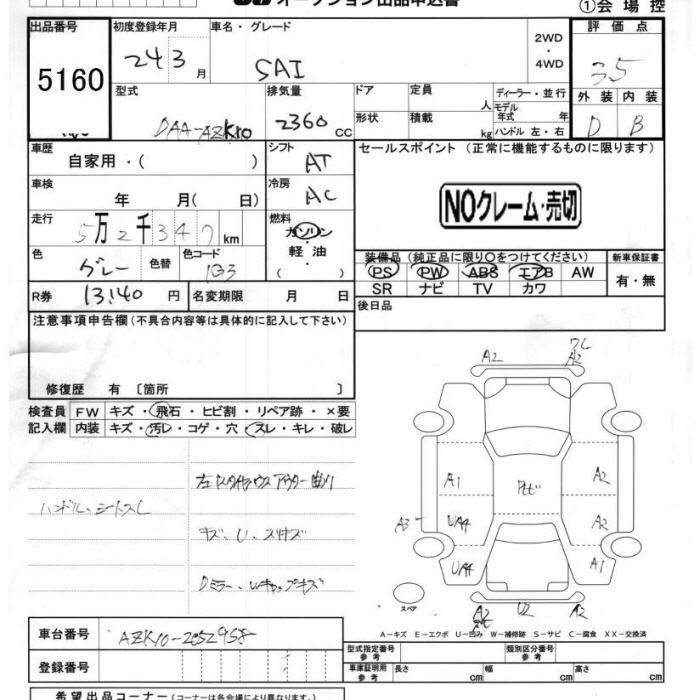 オークション出品申込書
①会場控
出品番号
5160
初度登録年月
24 3 月
車名・グレード
SAI
2WD
・
4WD
評価点
3.5
外装 内装
D B
型式
DAA-AZK10
排気量
2360 CC
ドア
形状
定員 人
積載 kg
ディーラー・並行
モデル年式 年
ハンドル 左・右
車歴
自家用・( )
シフト
AT
車検
年 月( 日)
冷房
AC
走行
5万2千347 km
燃料
ガソリン
軽・油
( )
色
グレー
色替
色コード
1G3
R券 13,140 円
名変期限 月 日
セールスポイント (正常に機能するものに限ります)
NOクレーム・売切
装備品(純正品に限り○をつけてください)
新車保証書
PS PW ABS エアB AW
SR ナビ TV カワ
有・無
後日品
注意事項申告欄(不具合内容等は具体的に記入して下さい)
修復歴 有 〔箇所 〕
検査員 FW キズ・飛石・ヒビ割・リペア跡・×要
記入欄 内装 キズ・汚レ・コゲ・穴・スレ・キレ・破レ
ハンドル、シートスレ
キズ、U、スリキズ
A2 A2
A1 A2
UA4 A2
A3
UA4 A1
スペア
A2 U2 A2
A-キズ E-エクボ U-凹み W-補修跡 S-サビ C-腐食 XX-交換済
車台番号 AZK10-2052958
登録番号
型式指定番号 参考
類別区分番号 参考
車庫証明用 参考
長さ cm 幅 cm 高さ cm
希望出品コーナー(コーナーは各会場により異なります)